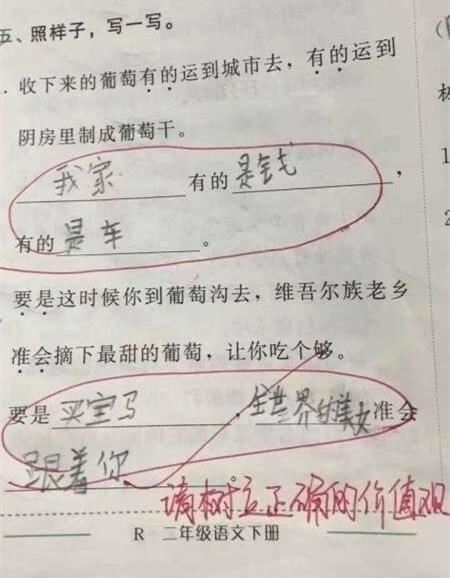 五、照样子，写一写。
. 收下来的葡萄有的运到城市去，有的运到
阴房里制成葡萄干。
我家 有的 是钱，
有的 是车。
要是这时候你到葡萄沟去，维吾尔族老乡
准会摘下最甜的葡萄，让你吃个够。
要是 买宝马，全世界的美女准会
跟着你。
请树立正确的价值观
R 二年级语文下册
1
2